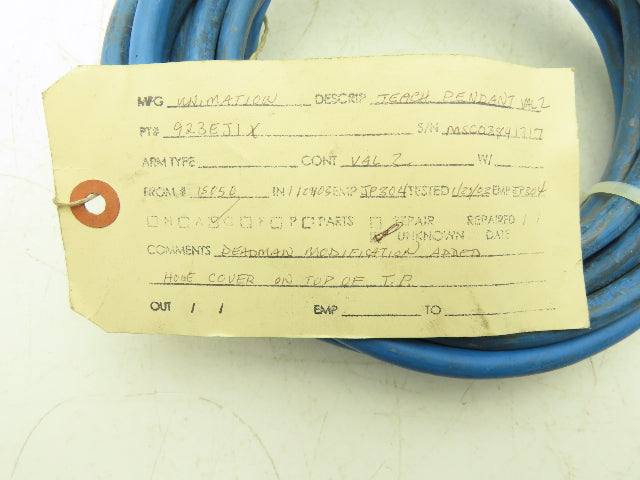 MFG UNIMATION DESCRIP TEACH PENDANT VAL 2
PT# 923EJ1X S/N MSC03841217
ARM TYPE CONT VAL 2 W/
FROM # 15050 IN EMP JP304 TESTED EMP JP304
N A C F P PARTS REPAIR REPAIRED / /
UNKNOWN DATE
COMMENTS DEADMAN MODIFICATION ADDED
HOLE COVER ON TOP OF T.P.
OUT / / EMP TO